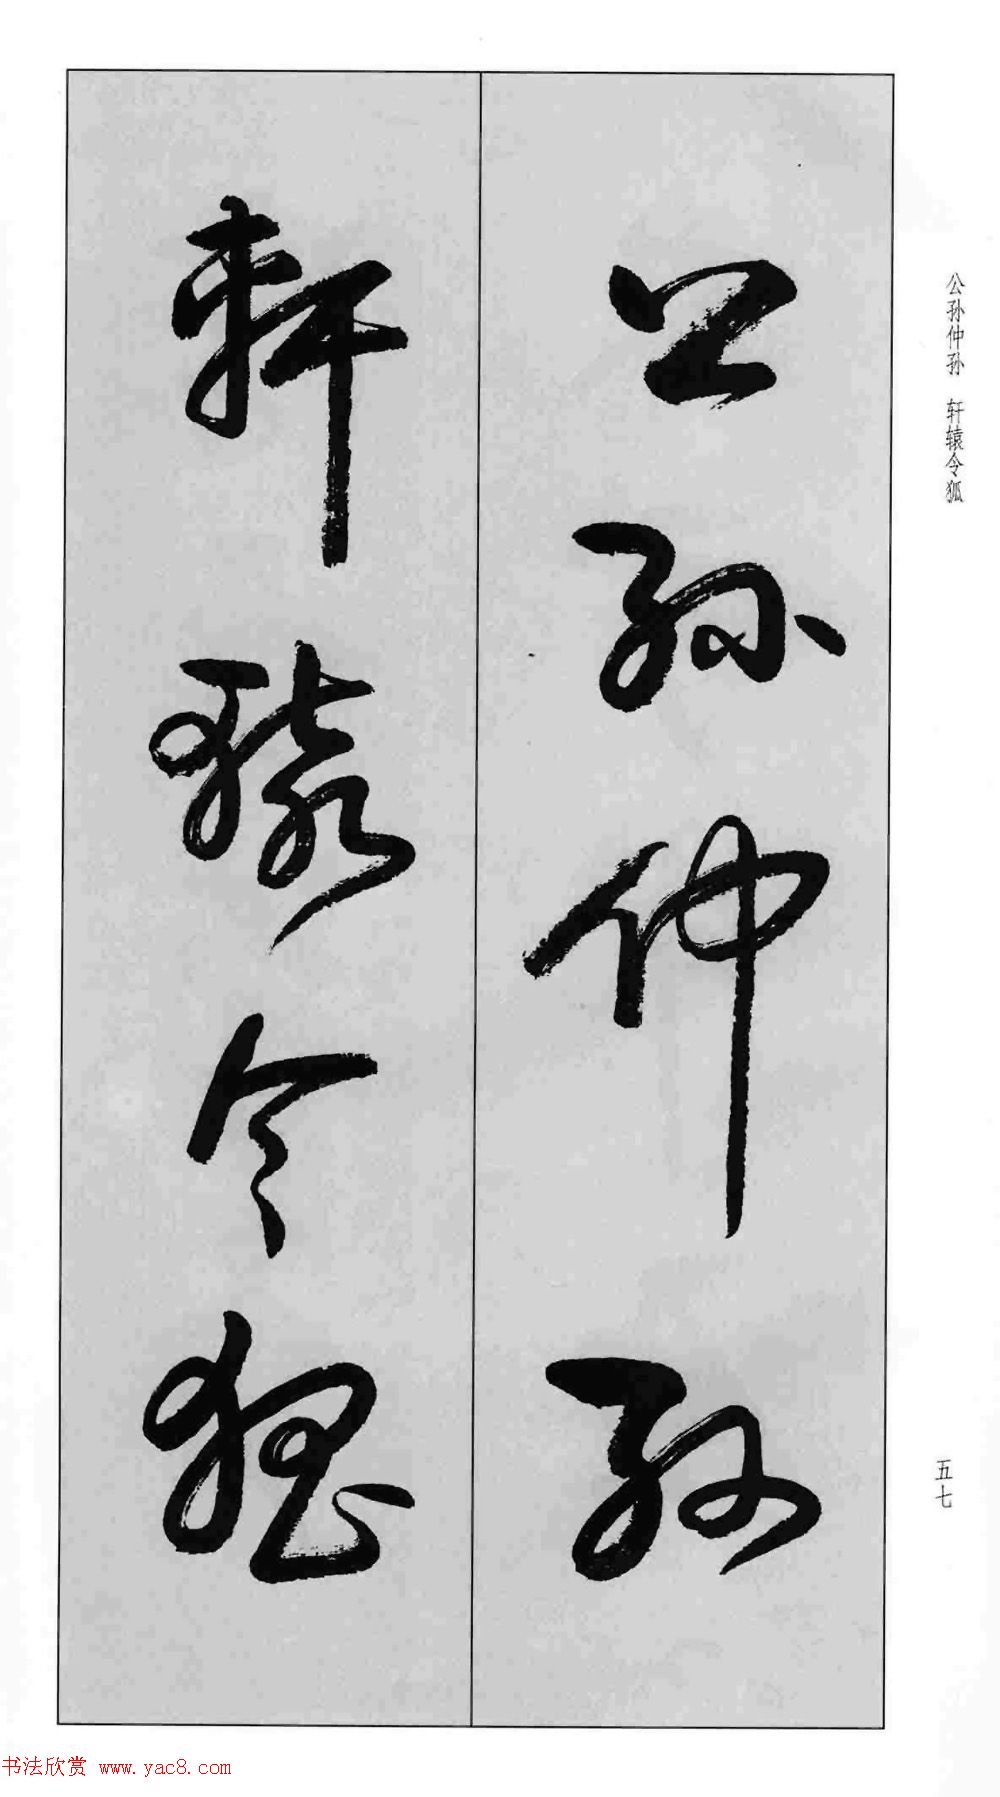 公孫仲孫
軒轅令狐
公孙仲孙　轩辕令狐
五七
书法欣赏 www.yac8.com